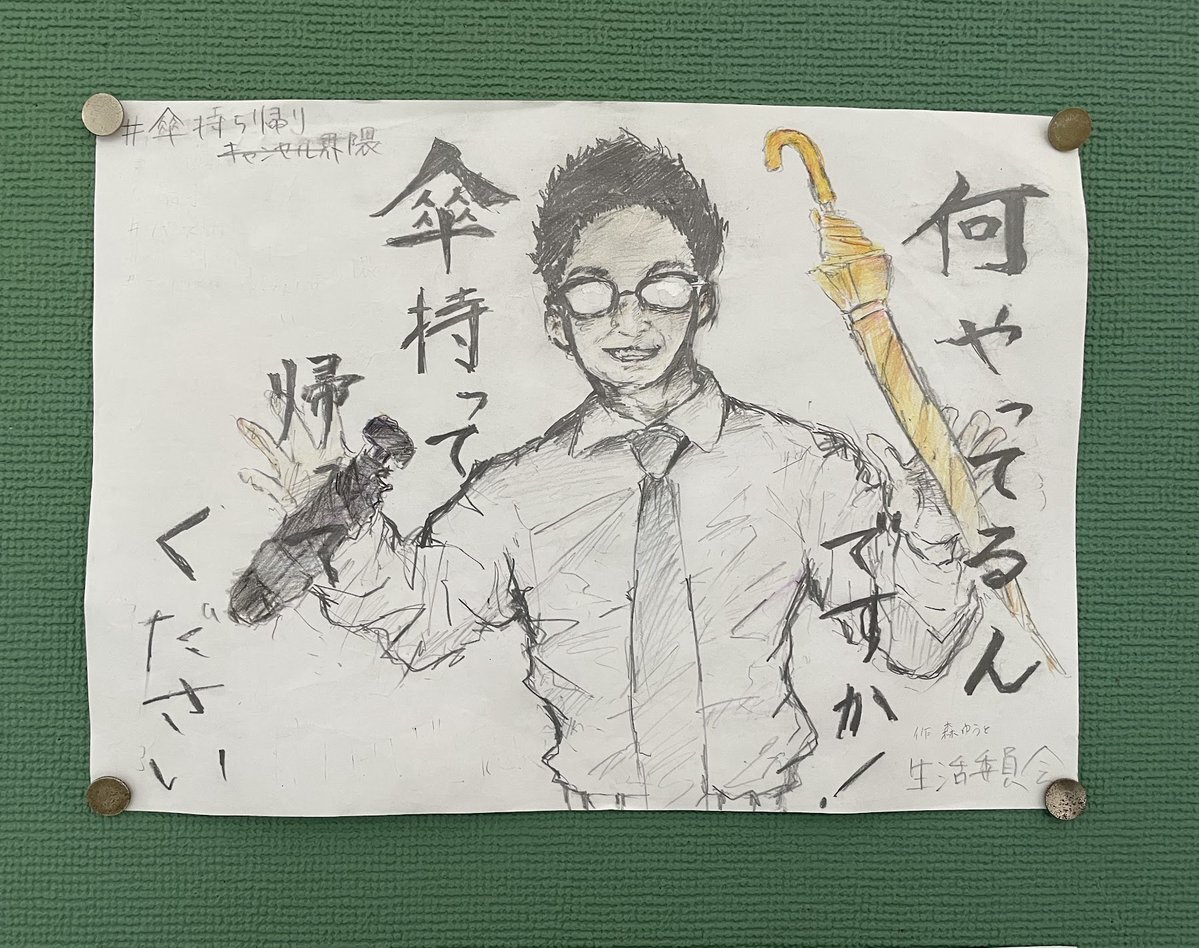 何やってるん
ですか!
傘持って
帰って
ください
#傘持ち帰り
キャンセル界隈
作 森ゆうと
生活委員会